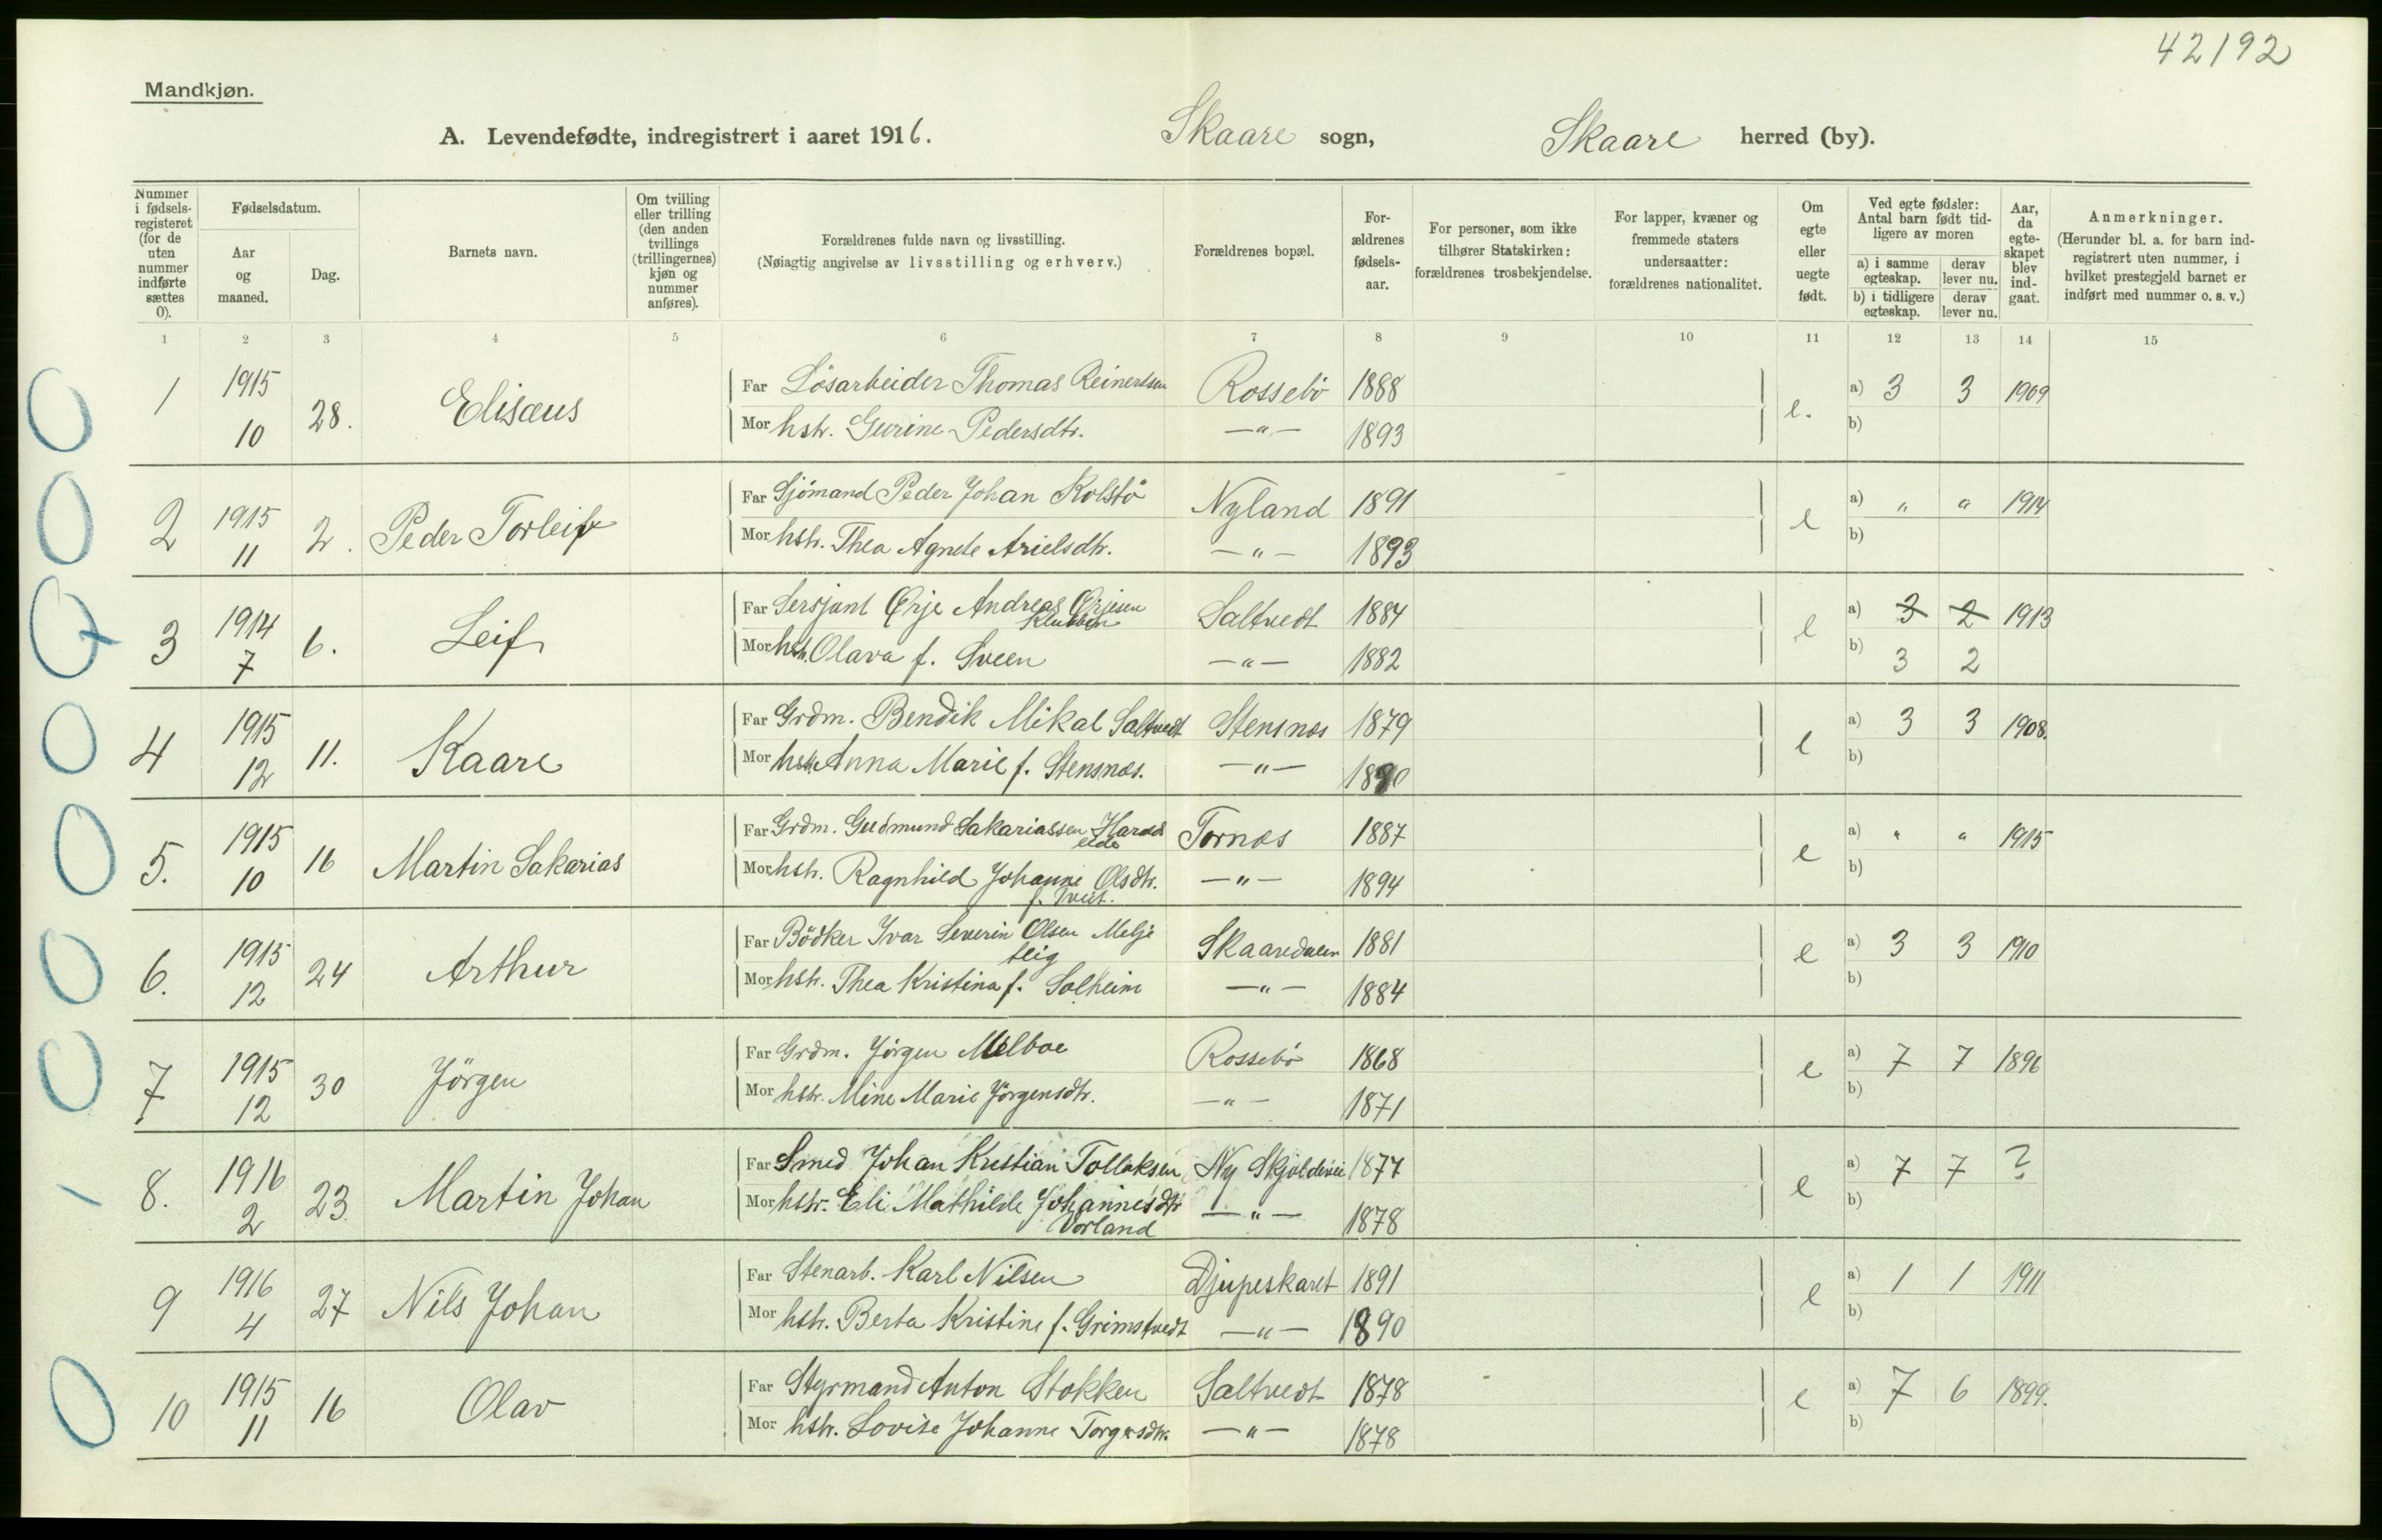 42192
Mandkjøn.
A. Levendefødte, indregistrert i aaret 1916. Skaare sogn, Skaare herred (by).
Nummer i fødsels-registeret (for de uten nummer indførte sættes 0).
Fødselsdatum.
Aar og maaned.
Dag.
Barnets navn.
Om tvilling eller trilling (den anden tvillings (trillingernes) kjøn og nummer anføres).
Forældrenes fulde navn og livsstilling.
(Nøiagtig angivelse av livsstilling og erhverv.)
Forældrenes bopæl.
For-ældrenes fødsels-aar.
For personer, som ikke tilhører Statskirken: forældrenes trosbekjendelse.
For lapper, kvæner og fremmede staters undersaatter: forældrenes nationalitet.
Om egte eller uegte født.
Ved egte fødsler: Antal barn født tid-ligere av moren
a) i samme egteskap. derav lever nu.
b) i tidligere egteskap. derav lever nu.
Aar, da egte-skapet blev ind-gaat.
Anmerkninger.
(Herunder bl. a. for barn ind-registrert uten nummer, i hvilket prestegjeld barnet er indført med nummer o. s. v.)
1 2 3 4 5 6 7 8 9 10 11 12 13 14 15
1 1915 10 28. Elisæus
Far Lösarbeider Thomas Reinertsen Rossebö 1888 e. a) 3 3 1909
Mor hstr. Gurine Pedersdtr. —"— 1893 b)
2 1915 11 2. Peder Torleif
Far Sjömand Peder Johan Kolstö Nyland 1891 e a) " " 1914
Mor hstr. Thea Agnete Arielsdtr. —"— 1893 b)
3 1914 7 6. Leif
Far Sersjant Ørje Andreas Ørjesen Klubben Saltvedt 1884 e a) 3 2 1913
Mor hstr. Olava f. Sveen —"— 1882 b) 3 2
4 1915 12 11. Kaare
Far Grdm. Bendik Mikal Saltvedt Stensnes 1879 e a) 3 3 1908.
Mor hstr. Anna Marie f. Stensnes. —"— 1890 b)
5. 1915 10 16 Martin Sakarias
Far Grdm. Gudmund Sakariassen Haraldseide Tornes 1887 e a) " " 1915
Mor hstr. Ragnhild Johanne Olsdtr. —"— 1894 b)
f. Tveit.
6. 1915 12 24 Arthur
Far Bödker Ivar Severin Olsen Meljeteig Skaaredalen 1881 e a) 3 3 1910
Mor hstr. Thea Kristina f. Solheim —"— 1884 b)
7 1915 12 30 Jörgen
Far Grdm. Jörgen Melboe Rossebö 1868 e a) 7 7 1896
Mor hstr. Mine Marie Jörgensdtr. —"— 1871 b)
8. 1916 2 23 Martin Johan
Far Smed Johan Kristian Tollaksen Ny Skjoldevei 1877 e a) 7 7 ?
Mor hstr. Eli Mathilde Johannesdtr Vorland —"— 1878 b)
9 1916 4 27 Nils Johan
Far Stenarb. Karl Nilsen Djupeskaret 1891 e a) 1 1 1911
Mor hstr. Berta Kristine f. Grimstvedt —"— 1890 b)
10 1915 11 16 Olav
Far Styrmand Anton Stokken Saltvedt 1878 e a) 7 6 1899.
Mor hstr. Lovise Johanne Torgersdtr. —"— 1878 b)